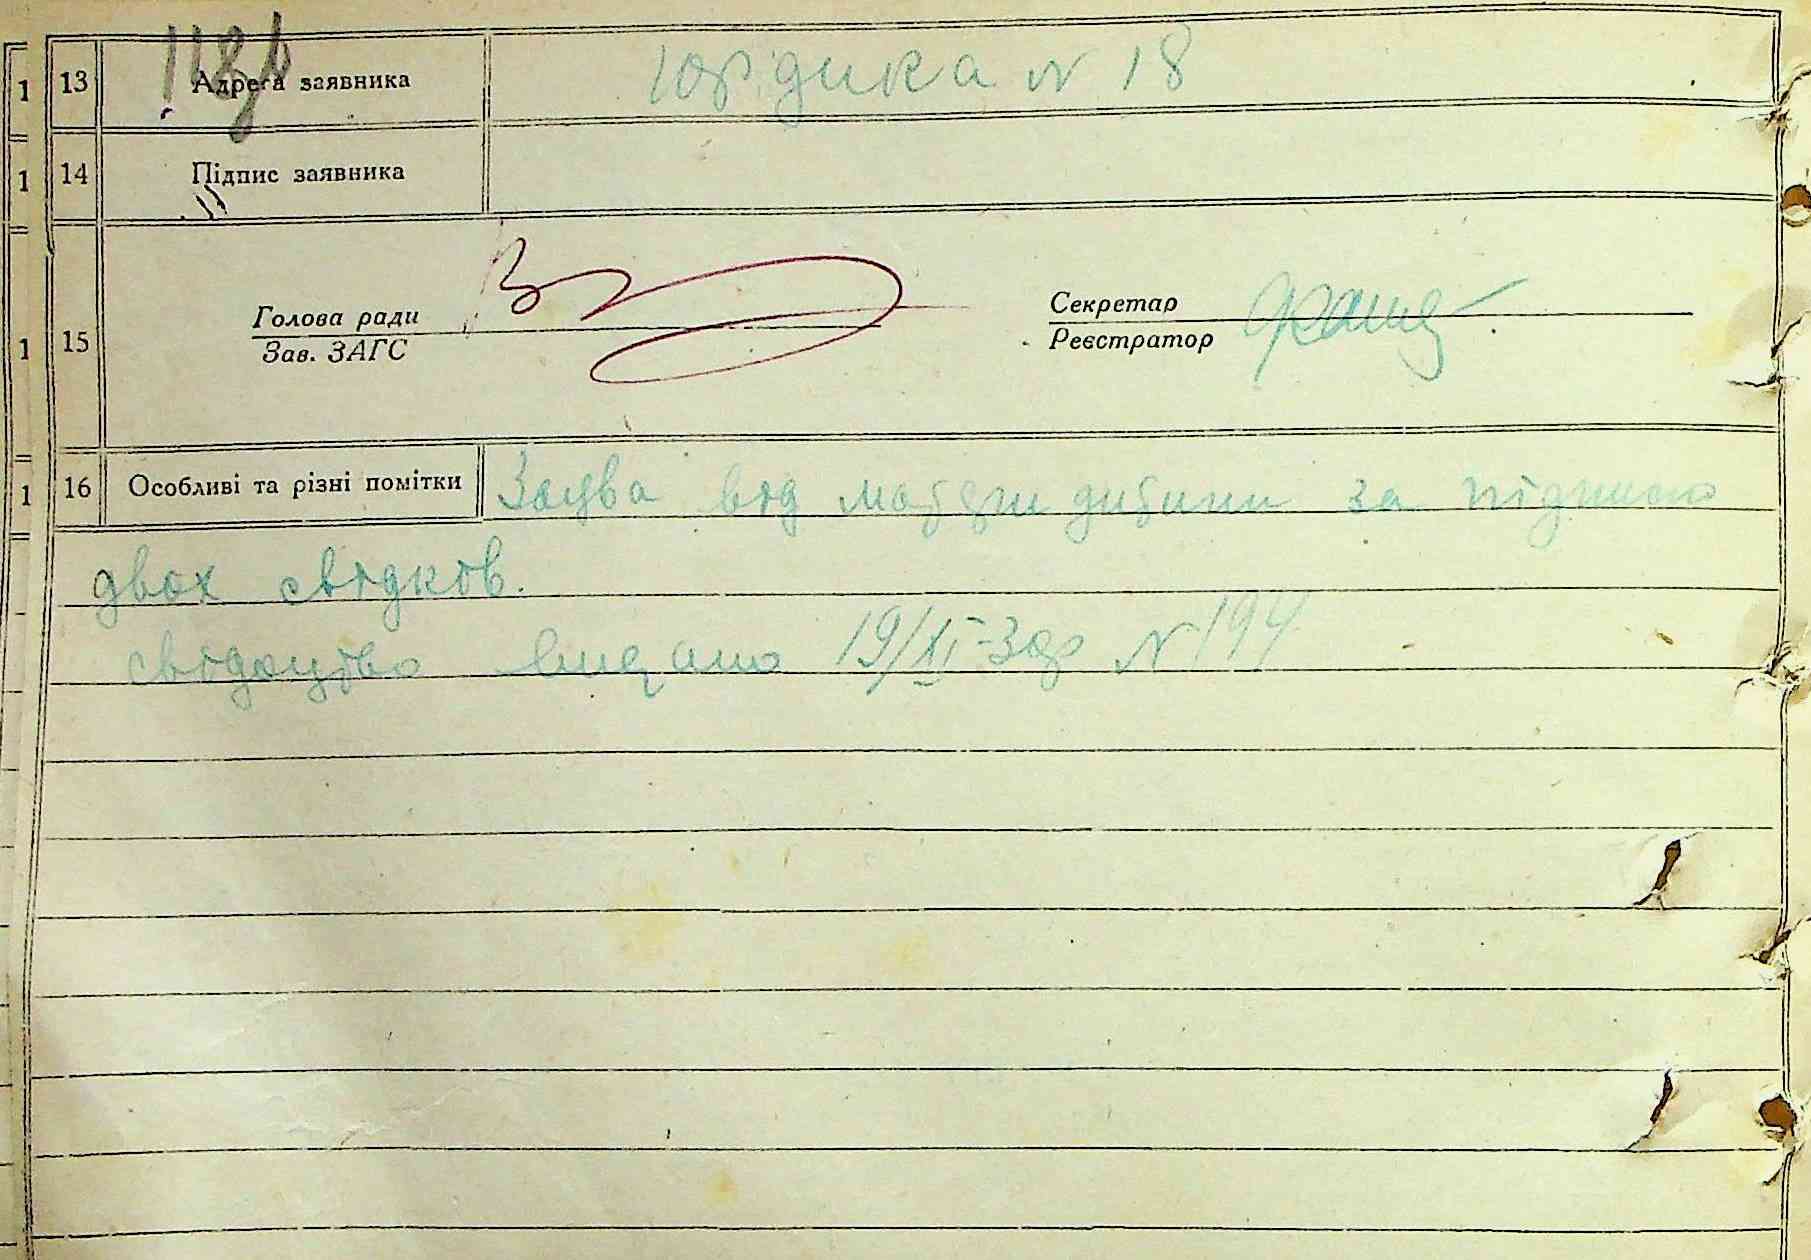 13 Адреса заявника Юрздика № 18
14 Підпис заявника
15 Голова ради Секретар
Зав. ЗАГС Реєстратор
16 Особливі та різні помітки Заява від матери дитини за підписю
двох свідків.
свідоцтво видано 19/XI-30р № 194